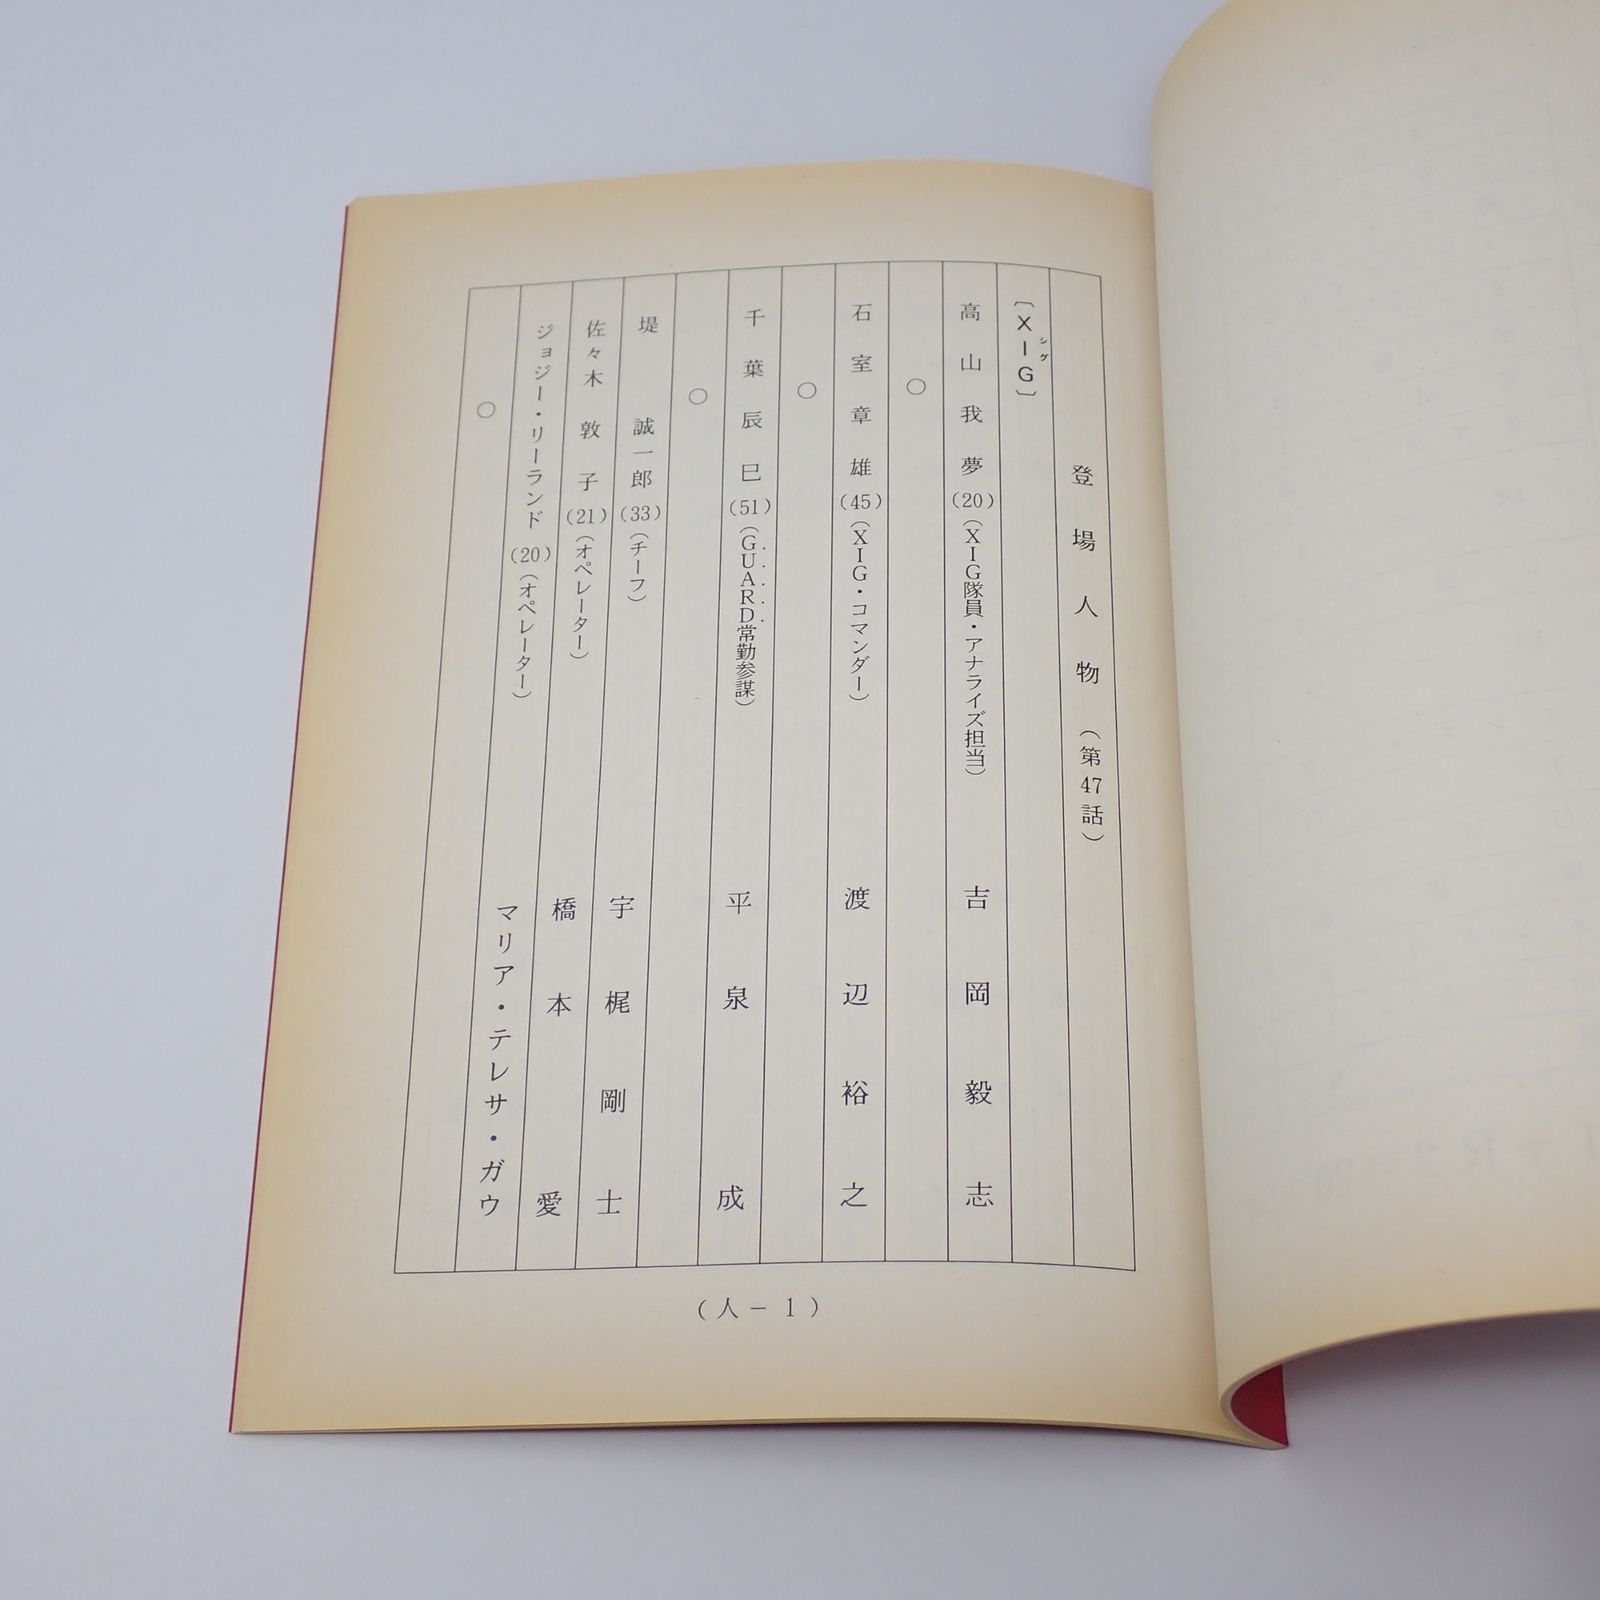 登場人物（第47話）
〔XIG〕
シグ
高山我夢(20)（XIG隊員・アナライズ担当）　吉岡毅志
○
石室章雄(45)（XIG・コマンダー）　渡辺裕之
○
千葉辰巳(51)（G.U.A.R.D.常勤参謀）　平泉成
○
堤　誠一郎(33)（チーフ）　宇梶剛士
佐々木敦子(21)（オペレーター）　橋本愛
ジョジー・リーランド(20)（オペレーター）　マリア・テレサ・ガウ
○
（人－1）